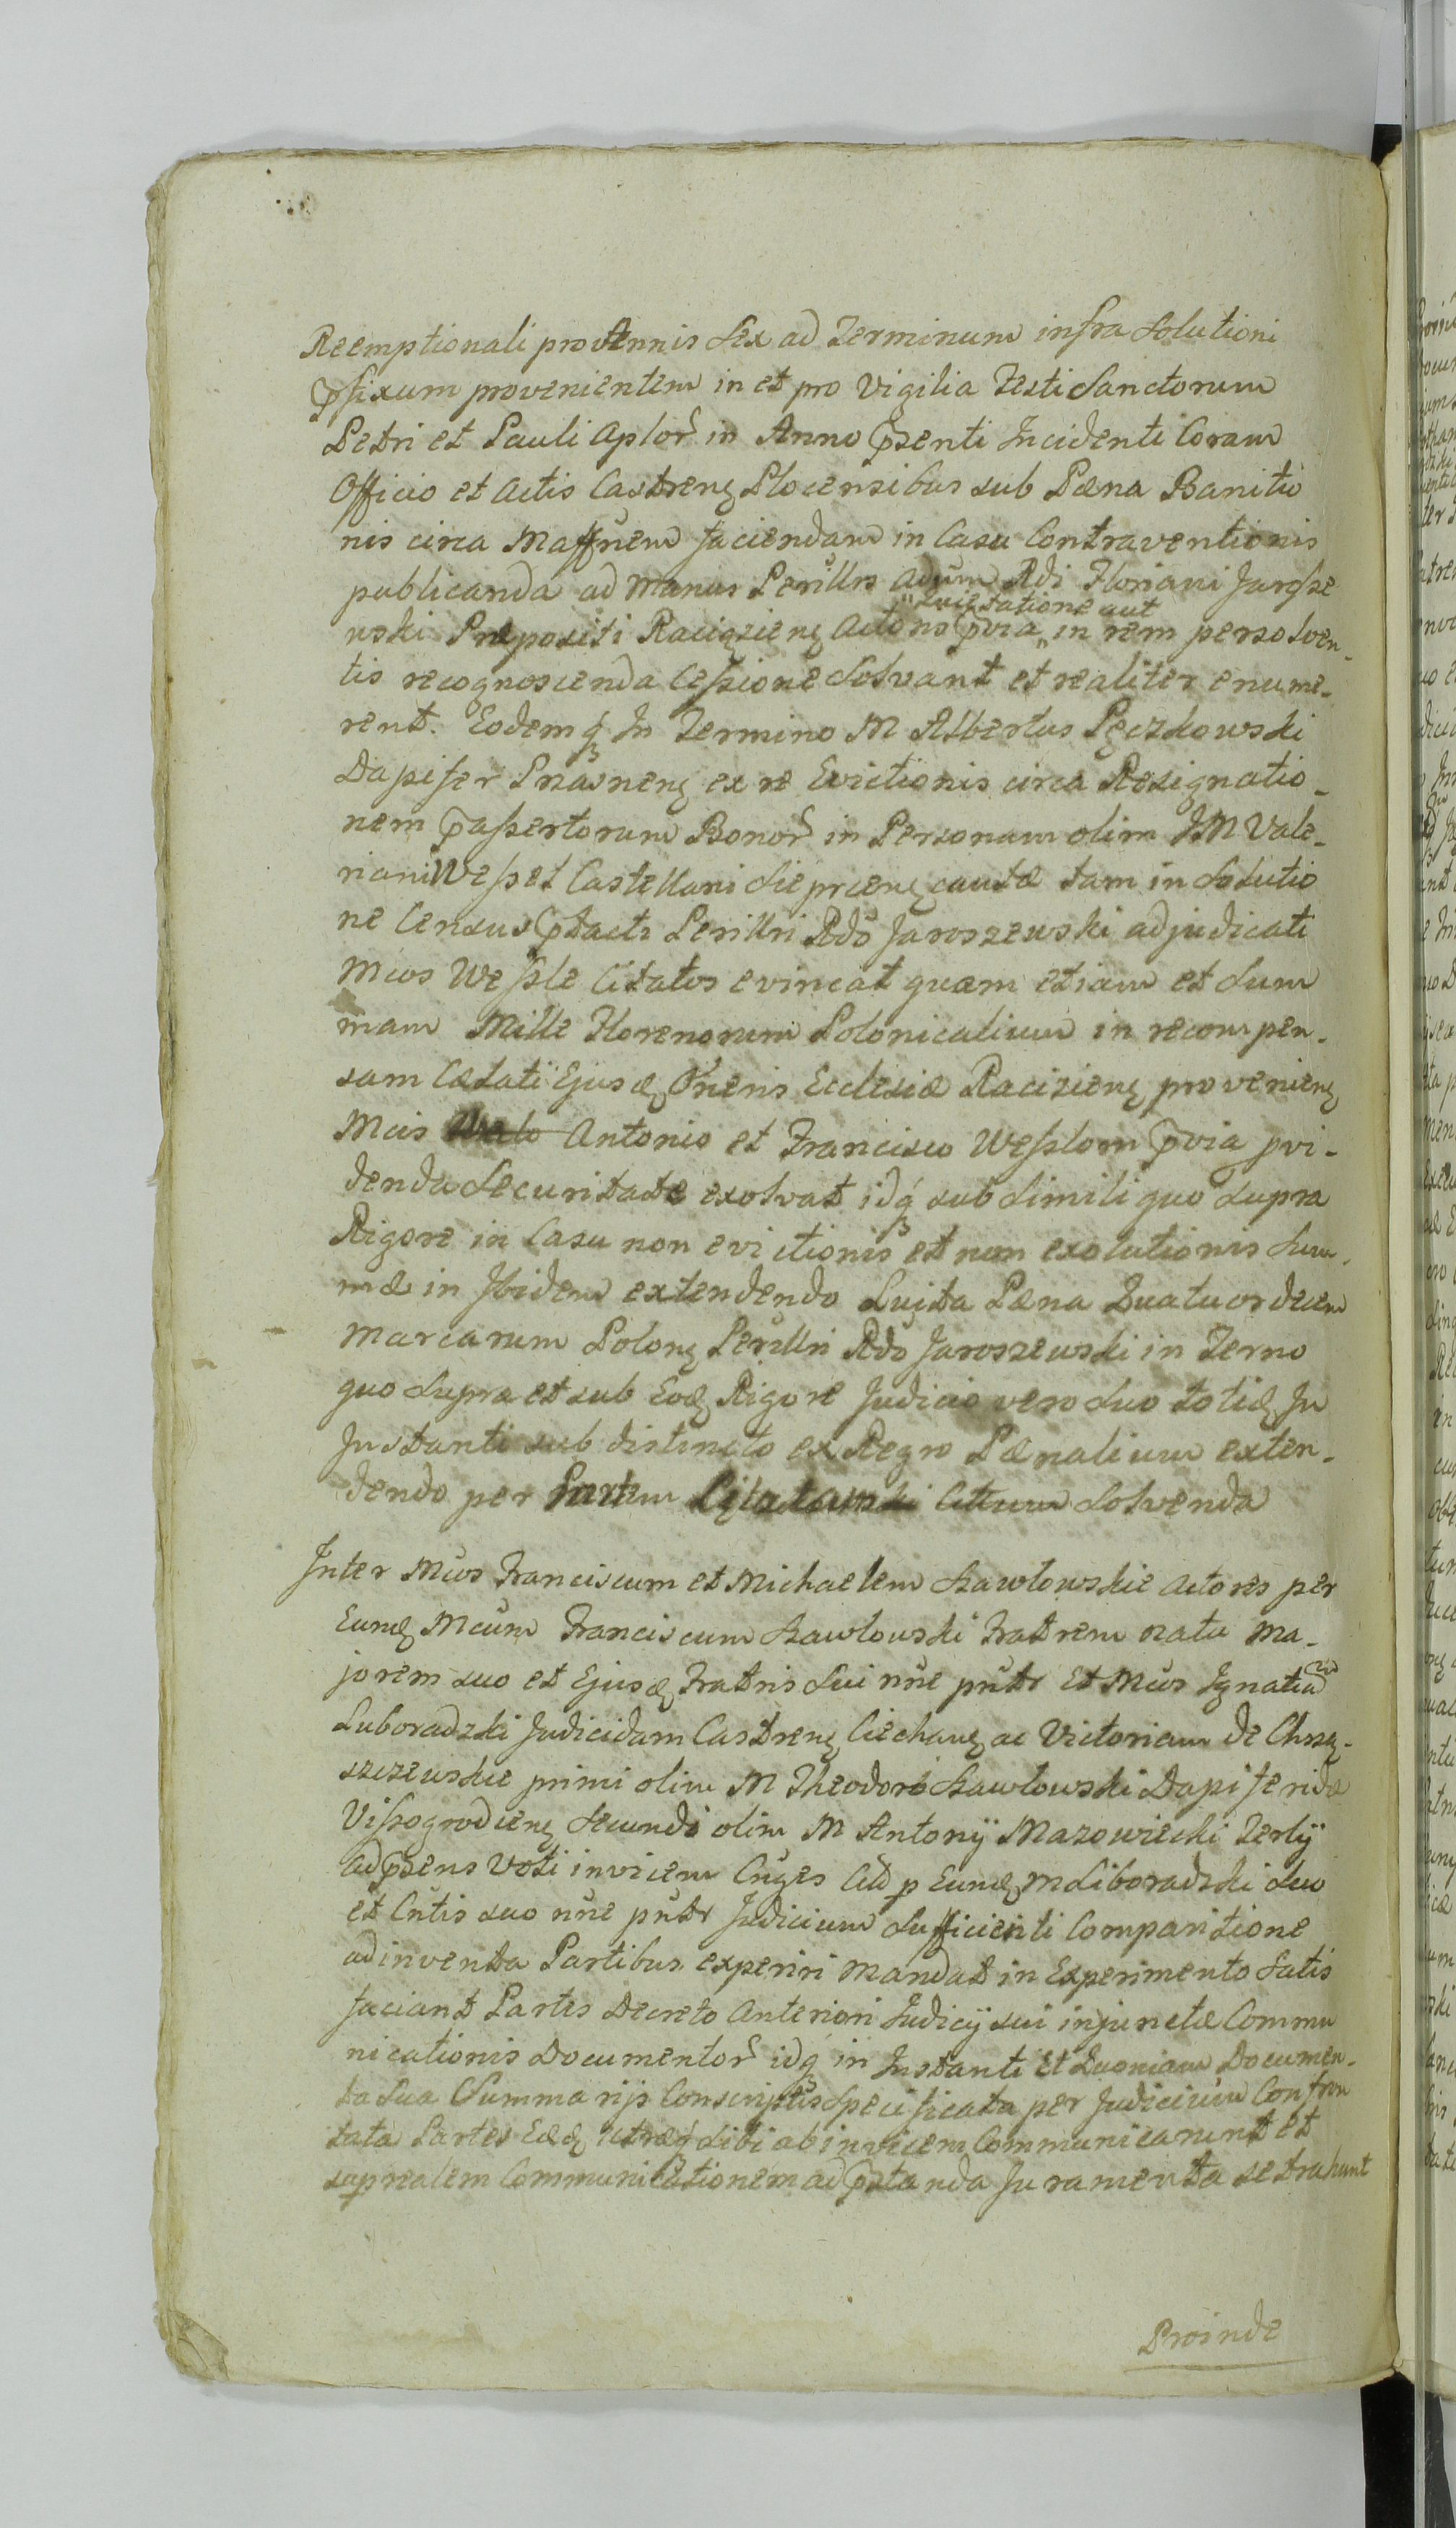 Reemptionali pro Annis Sex ad Terminum infra Solutioni
p̄fixum provenientem in et pro Vigilia Festi Sanctorum
Petri et Pauli Aplor̄ in Anno p̄senti Incidenti Coram
Officio et Actis Castreng Plocensibus sub Pæna Banitio
nis circa Maffnem faciendam in Casu Contraventionis
publicanda ad Manus Perillris adum Rdi Floriani Jarosze
wski Præpositi Raciązieng Actoris p̄via " Quietatione aut in rem persolven-
tis recognoscenda Cessione Solvant et realiter enume-
rent. Eodemq̃ In Termino M Albertus Pęczkowski
Dapifer Prasneng ex re Evictionis circa Resignatio-
nem p̄assertorum Bonor̄ in Personam olim JM Vale-
riani Wessel Castellani Sieprceng cautæ tam in Solutio
ne Census p̄tacti Perillri Rdo Jaroszewski adjudicati
Mcos Wessle Citatos evincat quam etiam et Sum
mam Mille Florenorum Polonicalium in recompen-
sam Cætati Ejusd Oneris Ecclesiæ Raciziens provenieng
Mcis Antonio et Francisco Wesslom p̄via pvi-
denda Securitate exolvat idq̃ sub Simili quo Supra
Rigore in Casu non evictionis et non exolutionis Sum-
mæ in Ibidem extendendo Luita Pæna Quatuordecem
Marcarum Polong Perillri Rdo Jaroszewski in Termo
quo Supra et sub Eod Rigore Judicio vero Suo totid In
Instanti sub distincto ex Regro Pænalium exten-
dendo per Partem Citatum Solvenda
Inter Mcos Franciscum et Michaelem Szawłowskie Actores per
Eumd Mcum Franciscum Szawłowski Fratrem natu Ma-
jorem suo et Ejusd Fratris Sui nñe pñtr Et Mcos Ignatium
Luboradzki Judicidam Castreng Ciechang ac Victoriam de Chrzą-
szczewskie primi olim M Theodori Szawłowski Dapiferidæ
Vissogrodieng Secundi olim M Antonij Mazowiecki Tertij
ad p̄sens Voti invicem Cnĝes Citt p Eumd M Liboradzki Suo
et Cntis suo nñe pñtr Judicium Sufficienti Comparitione
adinventa Partibus experiri Mandat in Experimento Satis
faciant Partes Decreto Anteriori Judicij sui injunctæ Commu
nicationis Documentor̄ idq̃ in Instanti Et Quoniam Documen-
ta Sua Summarijs Conscriptis Specificata per Judicium Confron
tata Partes Eæd utræq̃ Sibi ab invicem Communicarunt et
sup realem Communicationem ad p̄standa Juramenta se trahunt
Proinde